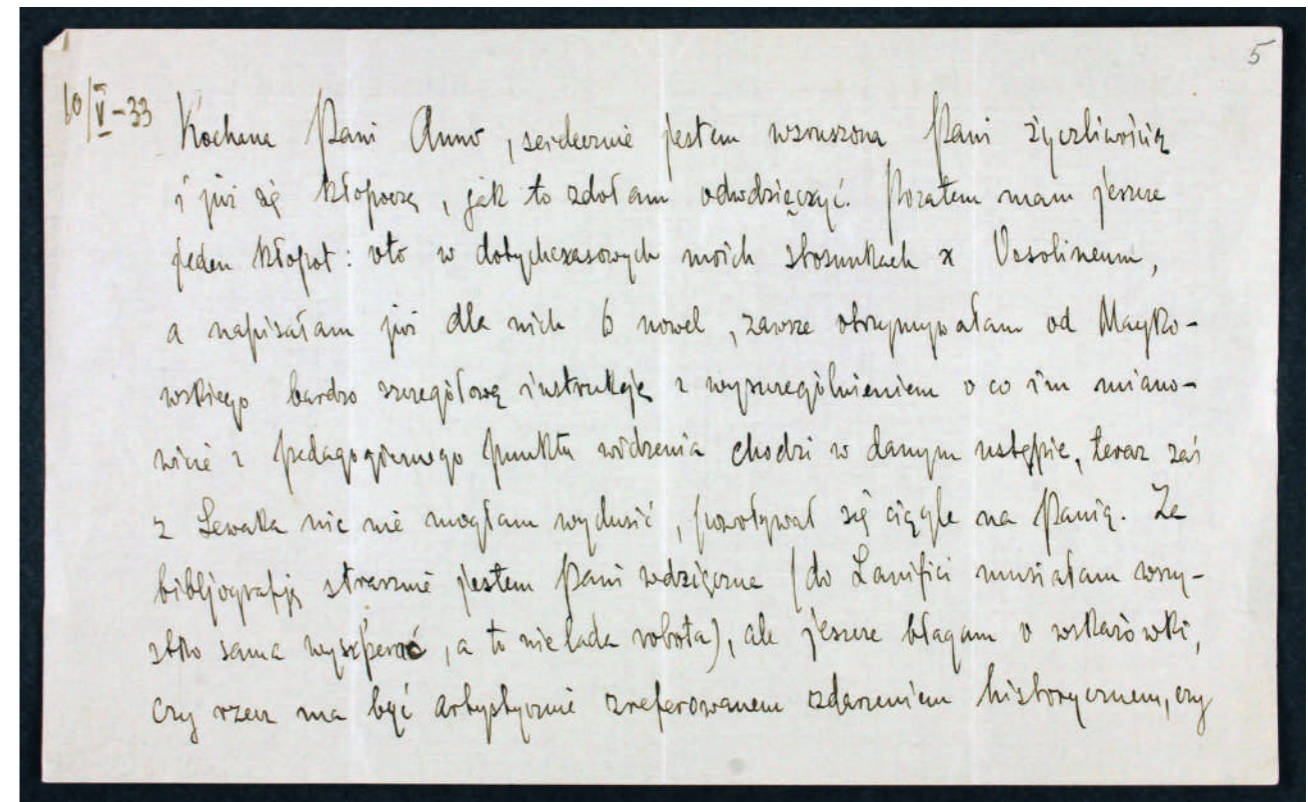 5
10/V-33
Kochana Pani Anno, serdecznie jestem wzruszona Pani życzliwością
i już się kłopoczę, jak to zdołam odwdzięczyć. Pozatem mam jeszcze
jeden kłopot: oto w dotychczasowych moich stosunkach z Ossolineum,
a napisałam już dla nich 6 nowel, zawsze otrzymywałam od Mayko-
wskiego bardzo szczegółową instrukcję z wyszczególnieniem o co im miano-
wicie z pedagogicznego punktu widzenia chodzi w danym ustępie, teraz zaś
z Lewaka nic nie mogłam wydusić, powoływał się ciągle na Panią. Za
bibljografję strasznie jestem Pani wdzięczna (do Lanifici musiałam wszy-
stko sama wyszperać, a to nielada robota), ale jeszcze błagam o wskazówki,
czy rzecz ma być artystycznie zreferowanem zdarzeniem historycznem, czy